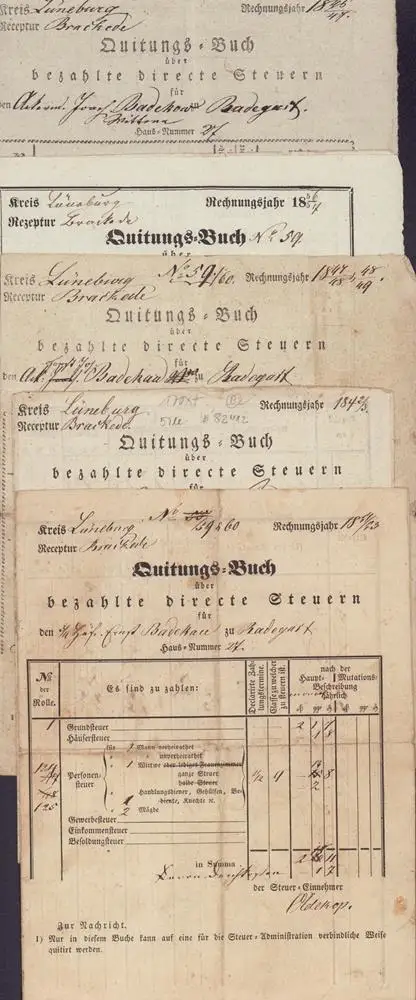 Kreis Lüneburg Rechnungsjahr 18 46/47.
Receptur Brackede
Quitungs-Buch
über
bezahlte directe Steuern
für
den Badekow Radegast.
Wittwe
Haus-Nummer 27
Kreis Lüneburg Rechnungsjahr 18 56/57
Rezeptur Brackede
Quitungs=Buch No 59
über
Kreis Lüneburg No 59/60. Rechnungsjahr 18 47/48, 48/49.
Receptur Brackede
Quitungs-Buch
über
bezahlte directe Steuern
für
den Badekau zu Radegast
Kreis Lüneburg Rechnungsjahr 184 2/3.
Receptur Brackede. # 82412
Quitungs-Buch
über
bezahlte directe Steuern
für
No 59 & 60
Kreis Lüneburg Rechnungsjahr 18
Receptur Brackede
Quitungs=Buch
über
bezahlte directe Steuern
für
den Ernst Badekau zu Radegast
Haus-Nummer 27.
No der Rolle.
Es sind zu zahlen:
Declarirte Zahlungstermine.
Classe zu welcher zu steuern ist.
nach der
Haupt- Mutations-
Beschreibung
jährlich
1 Grundsteuer 2 1 7
Häusersteuer 1 8
Personensteuer
für 1 Mann verheirathet
" unverheirathet
" 1 Wittwe oder lediges Frauenzimmer
ganze Steuer
halbe Steuer
" Handlungsdiener, Gehülfen, Bediente, Knechte ic.
" 2 Mägde
125
1/2 4
Gewerbesteuer
Einkommensteuer
Besoldungsteuer
in Summa
der Steuer-Einnehmer
Oldekop.
Zur Nachricht.
1) Nur in diesem Buche kann auf eine für die Steuer-Administration verbindliche Weise
quitirt werden.